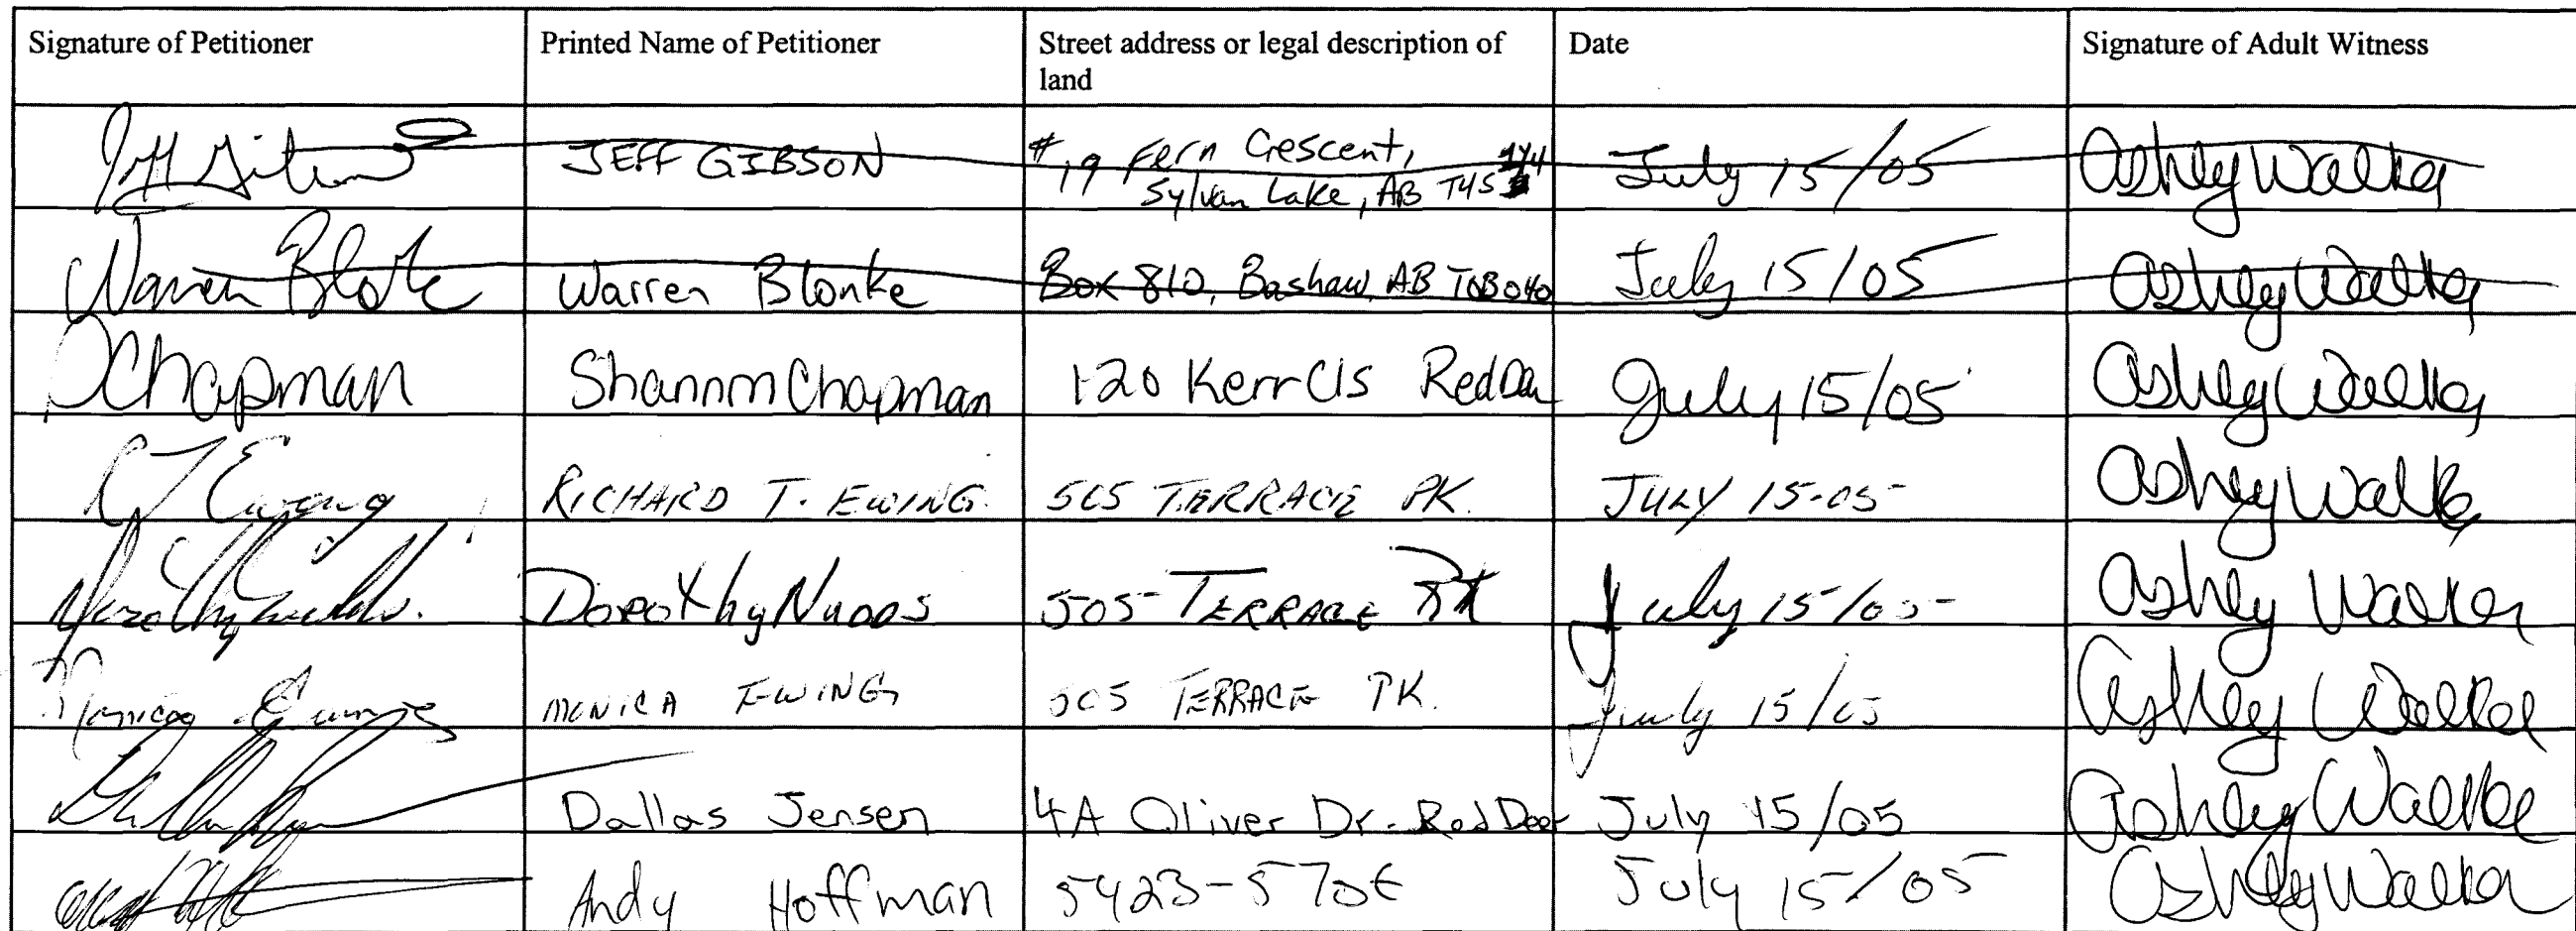 Signature of Petitioner Printed Name of Petitioner Street address or legal description of Date Signature of Adult Witness
land
Jeff Gibson JEFF GIBSON #19 Fern Crescent, July 15/05 Ashley Walker
Sylvan Lake, AB T4S
Warren Blonke Warren Blonke Box 810, Bashaw, AB T0B 0H0 July 15/05 Ashley Walker
SChapman Shannon Chapman 120 Kerr Cls Red Deer July 15/05 Ashley Walker
RT Ewing RICHARD T. EWING. 505 TERRACE PK. JULY 15-05 Ashley Walker
Dorothy Nudds. Dorothy Nudds 505 TERRACE PK July 15/05 Ashley Walker
Monica Ewing MONICA EWING 505 TERRACE PK. July 15/05 Ashley Walker
Dallas Jensen 4A Oliver Dr. Red Deer July 15/05 Ashley Walker
Andy Hoffman July 15/05 Ashley Walker